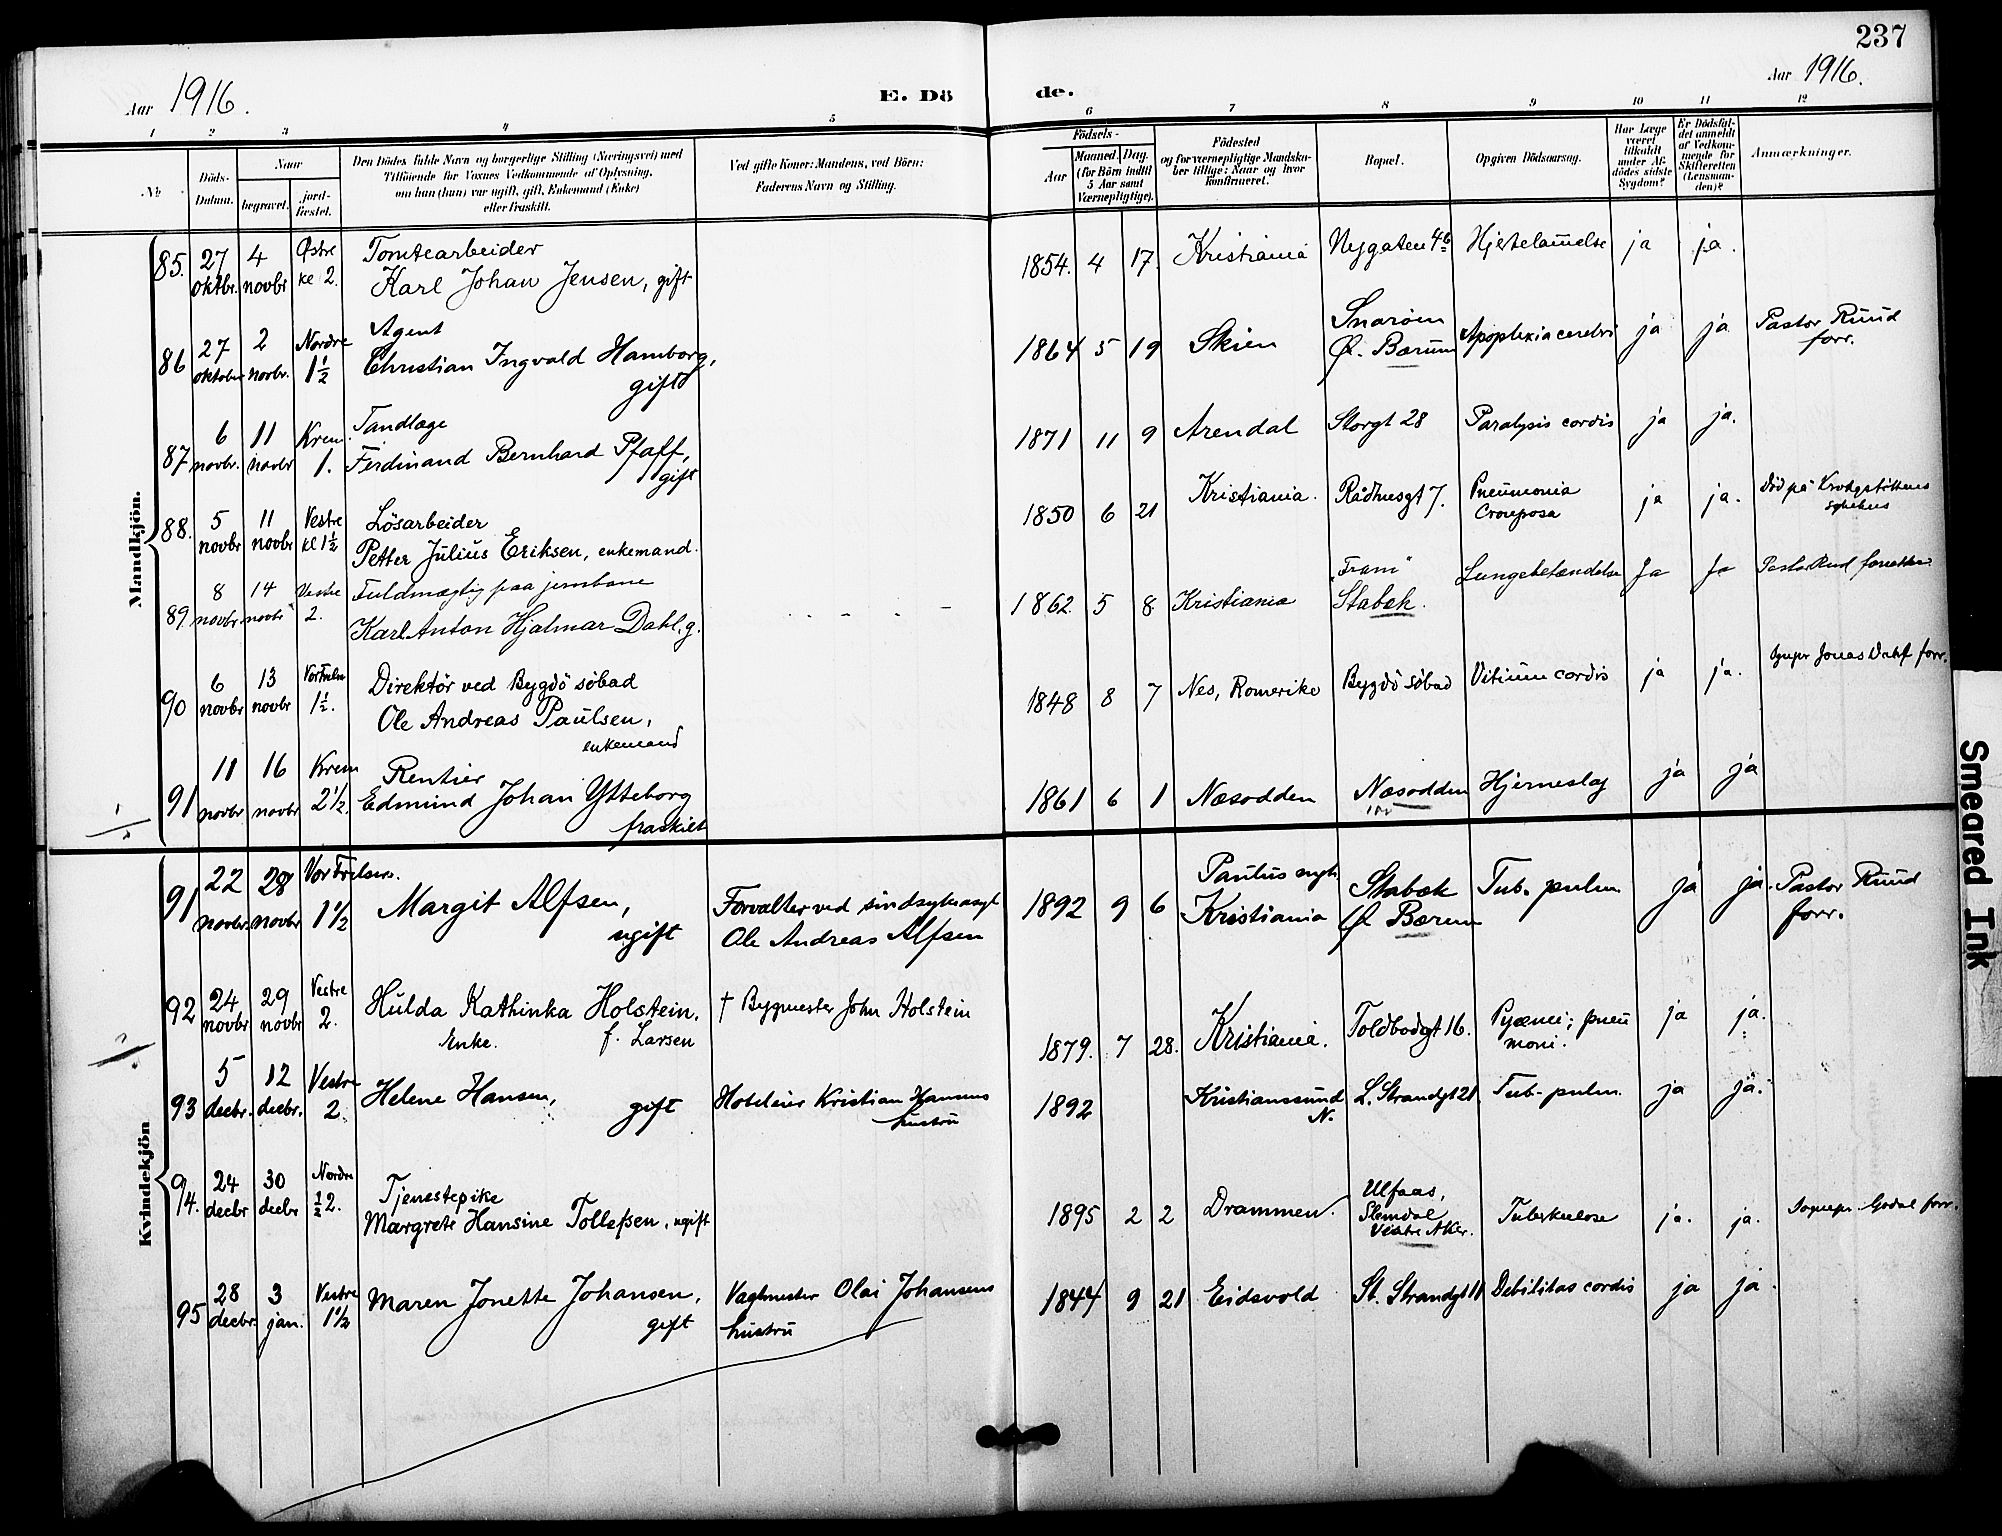 237
Aar 1916.
E. Döde.
Aar 1916.
1 2 3 4 5 6 7 8 9 10 11 12
No.
Döds-
Datum.
Naar
begravet.
jord-
fæstet.
Den Dödes fulde Navn og borgerlige Stilling (Næringsvei) med
Tilföiende for Voxnes Vedkommende af Oplysning,
om han (hun) var ugift, gift, Enkemand (Enke)
eller fraskilt.
Ved gifte Koner: Mandens, ved Börn:
Faderens Navn og Stilling.
Födsels-
Aar
Maaned. Dag.
(for Börn indtil
5 Aar samt
Værnepligtige).
Födested
og for værnepligtige Mandska-
ber tillige: Naar og hvor
konfirmeret.
Bopæl.
Opgiven Dödsaarsag.
Har Læge
været
tilkaldt
under Af-
dödes sidste
Sygdom?
Er Dödsfal-
det anmeldt
af Vedkom-
mende for
Skifteretten
(Lensman-
den)?
Anmærkninger.
Mandkjön.
85. 27 oktbr. 4 novbr Østre kl 2. Tomtearbeider
Karl Johan Jensen, gift 1854. 4 17. Kristiania Nygaten 46 Hjertelammelse ja ja.
86 27 oktober 2 novbr. Nordre 1½ Agent
Christian Ingvald Hamborg,
gift 1864 5 19 Skien Snarøen
Ø. Bærum Apoplexia cerebri ja ja Pastor Ruud
forr.
87 6 novbr. 11 novbr Krem. 1. Tandlæge
Ferdinand Bernhard Pfaff,
gift 1871 11 9 Arendal Storgt 28 Paralysis cordis ja ja.
88. 5 novbr 11 novbr Vestre kl 1½ Lösarbeider
Petter Julius Eriksen, enkemand. 1850 6 21 Kristiania. Rådhusgt 7. Pneumonia
Crouposa ja ja. Död på Krohgstöttens
sykehus
89. 8 novbr. 14 novbr Vestre 2. Fuldmægtig paa jernbane
Karl Anton Hjalmar Dahl, g. 1862 5 8. Kristiania "Fram"
Stabæk. Lungebetændelse Ja Ja
90 6 novbr 13 novbr 1½. Direktör ved Bygdö söbad
Ole Andreas Paulsen,
enkemand 1848 8 7 Nes, Romerike Bygdö söbad Vitium cordis ja ja. Jonas Dahl forr.
91 11 novbr. 16 novbr Krem 2½. Rentier
Edmund Johan Ytteborg
fraskilt 1861 6 1 Næsodden Næsodden Hjerneslag ja ja
Kvindekjön
91 22 novbr. 28 novbr Vor Frelsers. 1½ Margit Alfsen,
ugift Forvalter ved sindsykeasyl
Ole Andreas Alfsen 1892 9 6 Paulus mgh.
Kristiania Stabæk
Ø Bærum Tub. pulm ja ja. Pastor Ruud
forr.
92 24 novbr 29 novbr Vestre 2. Hulda Kathinka Holstein,
Enke. f. Larsen † Bygmester John Holstein 1879. 7 28. Kristiania. Toldbodgt 16. Pyæmi; pneu
moni. ja ja.
93 5 decbr. 12 decbr. Vestre 2. Helene Hansen,
gift Hoteleier Kristian Hansens
hustru 1892 Kristianssund
N. L. Strandgt 21 Tub. pulm. ja ja.
94. 24 decbr 30 decbr Nordre ½2. Tjenestepike
Margrete Hansine Tollefsen, ugift 1895 2 2 Drammen. Ulfaas,
Slemdal
Vestre Aker. Tuberkulose ja. ja. Sognepr. Godal forr.
95 28 decbr. 3 jan. Vestre 1½ Maren Jonette Johansen,
gift Vagtmester Olai Johansens
hustru 1844 9 21 Eidsvold St. Strandgt 11 Debilitas cordis ja ja.
Smeared Ink